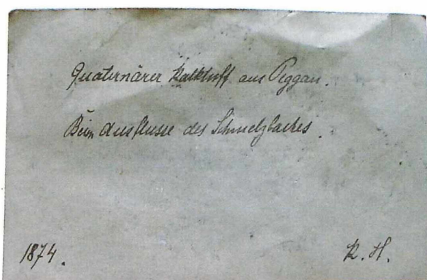 Quaternärer Kalktuff aus Peggau.
Beim Ausflusse des Schmelzbaches.
1874. R. H.